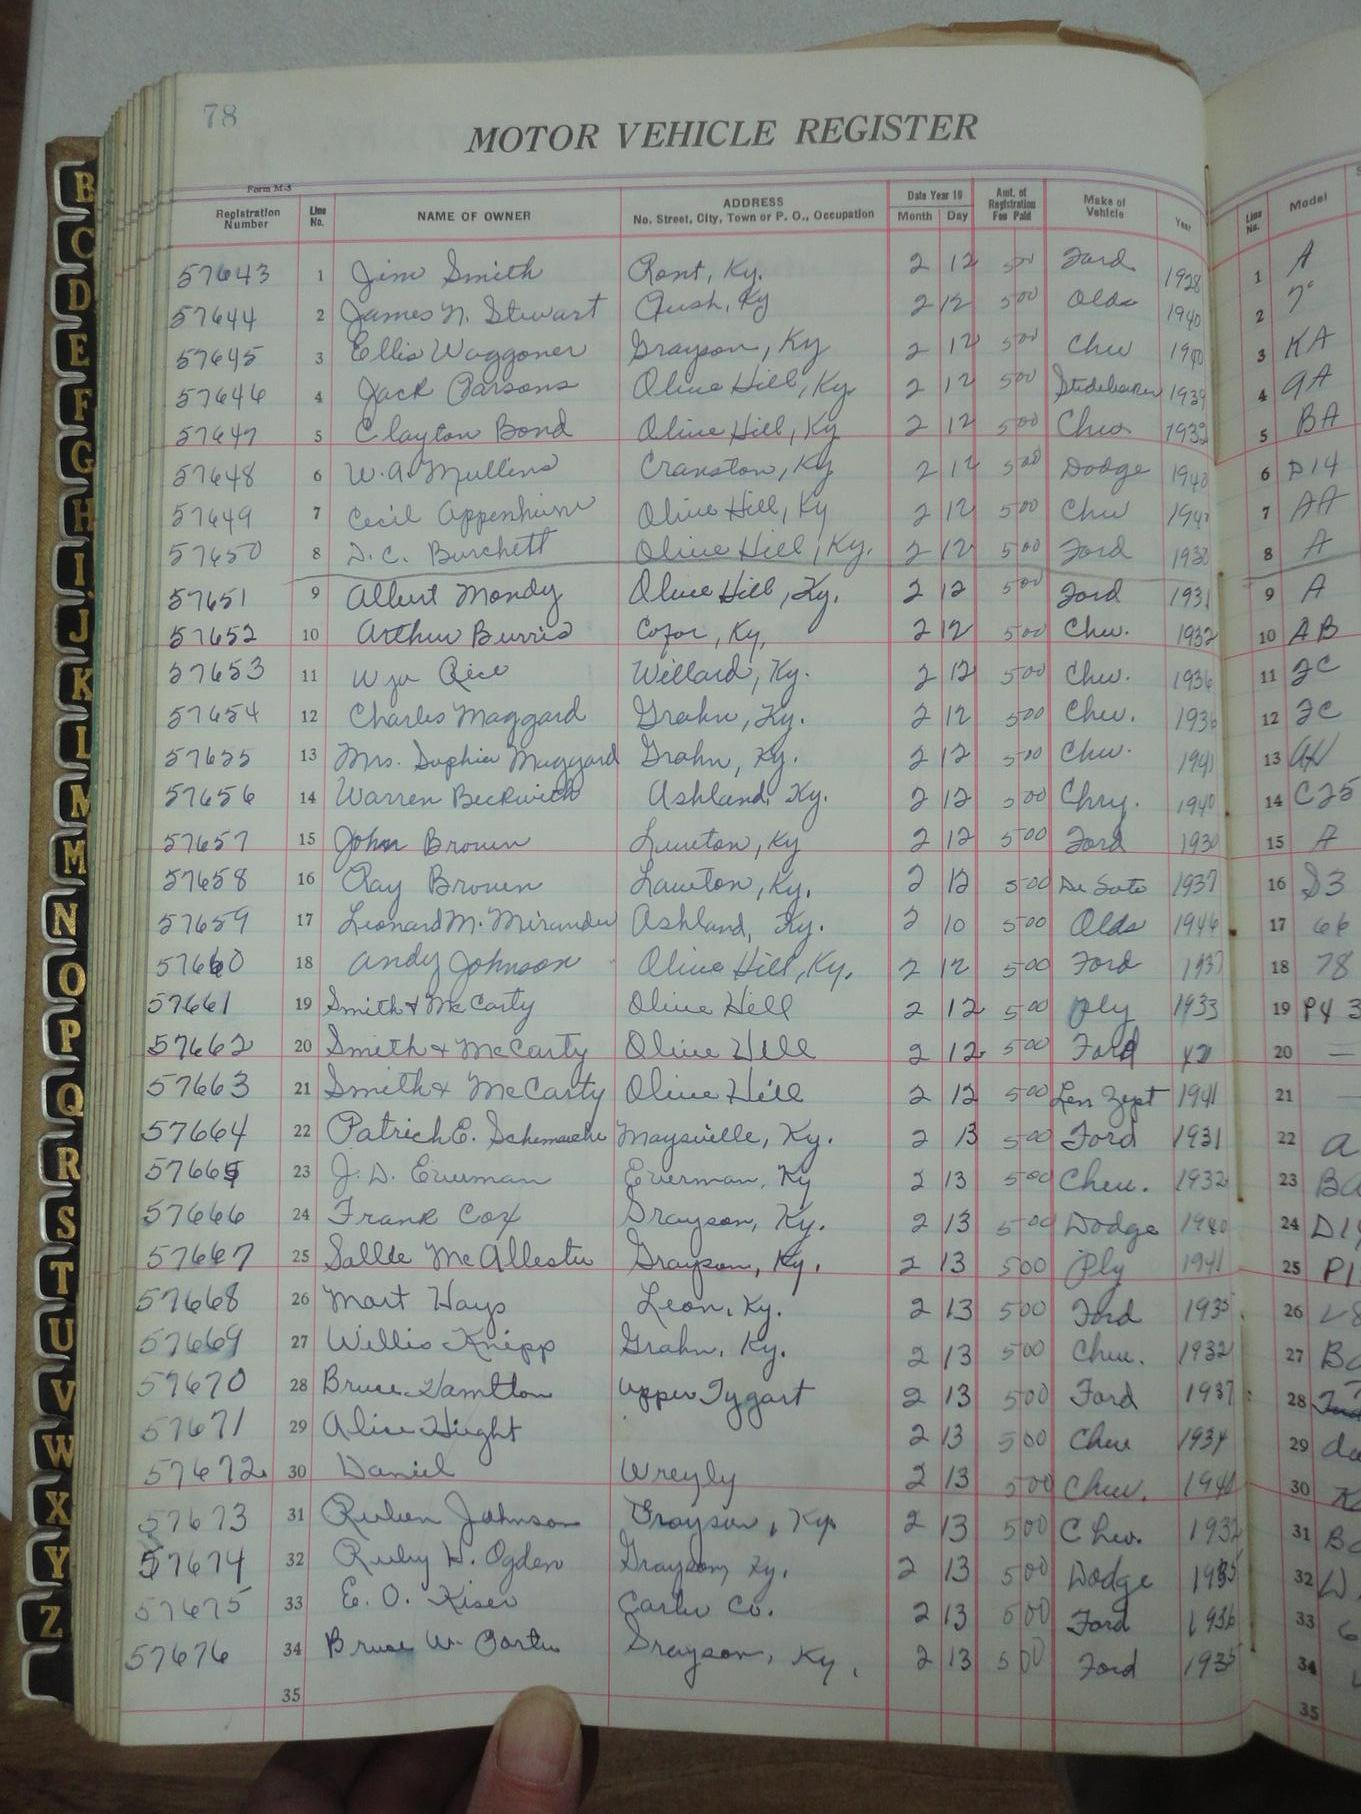 78
MOTOR VEHICLE REGISTER
Form M-5
Registration Number Line No. NAME OF OWNER ADDRESS No. Street, City, Town or P. O., Occupation Date Year 19 Month Day Amt. of Registration Fee Paid Make of Vehicle Year Line No. Model
57643 1 Jim Smith Ky. 2 12 5 00 Ford 1928 1 A
57644 2 James N. Stewart Rush, Ky 2 12 5 00 Olds 1940 2
57645 3 Ellis Waggoner Grayson, Ky 2 12 5 00 Chev 1940 3 KA
57646 4 Jack Parsons Olive Hill, Ky 2 12 5 00 Studebaker 1939 4 9A
57647 5 Clayton Bond Olive Hill, Ky 2 12 5 00 Chev 1932 5 BA
57648 6 W. A. Mullins Cranston, Ky 2 12 5 00 Dodge 1940 6 D14
57649 7 Cecil Olive Hill, Ky 2 12 5 00 Chev 7 AA
57650 8 D. C. Burchett Olive Hill, Ky. 2 12 5 00 Ford 1930 8 A
57651 9 Albert Mondy Olive Hill, Ky. 2 12 5 00 Ford 1931 9 A
57652 10 Arthur Burris Ky, 2 12 5 00 Chev. 1932 10 AB
57653 11 Rice Willard, Ky. 2 12 5 00 Chev. 1936 11 FC
57654 12 Charles Maggard Grahn, Ky. 2 12 5 00 Chev. 1936 12 FC
57655 13 Mrs. Sophia Maggard Grahn, Ky. 2 12 5 00 Chev. 1941 13
57656 14 Warren Beckwith Ashland, Ky. 2 12 5 00 Chry. 1940 14 C25
57657 15 John Brown Lawton, Ky 2 12 5 00 Ford 1930 15 A
57658 16 Ray Brown Lawton, Ky. 2 12 5 00 De Soto 1937 16 S3
57659 17 Leonard M. Ashland, Ky. 2 10 5 00 Olds 1946 17 66
57660 18 Andy Johnson Olive Hill, Ky. 2 12 5 00 Ford 1937 18 78
57661 19 Smith & McCarty Olive Hill 2 12 5 00 Ply 1933 19
57662 20 Smith & McCarty Olive Hill 2 12 5 00 Ford 20 —
57663 21 Smith & McCarty Olive Hill 2 12 5 00 Len Zept 1941 21 —
57664 22 Patrick E. Maysville, Ky. 2 13 5 00 Ford 1931 22 A
57665 23 J. D. Everman Everman, Ky 2 13 5 00 Chev. 1932 23 Ba
57666 24 Frank Cox Grayson, Ky. 2 13 5 00 Dodge 1940 24
57667 25 Sallie McAllester Grayson, Ky. 2 13 5 00 Ply 1941 25
57668 26 Mart Hays Leon, Ky. 2 13 5 00 Ford 1935 26
57669 27 Willis Knipp Grahn, Ky. 2 13 5 00 Chev. 1932 27 Ba
57670 28 Bruce Hamilton Upper Tygart 2 13 5 00 Ford 1937 28
57671 29 Alice Hight 2 13 5 00 Chev 1934 29
57672 30 Daniel 2 13 5 00 Chev. 30
57673 31 Ruben Johnson Grayson, Ky. 2 13 5 00 Chev. 1932 31
57674 32 Ruby H. Ogden Grayson, Ky. 2 13 5 00 Dodge 1935 32
57675 33 E. O. Kiser Carter Co. 2 13 5 00 Ford 1936 33
57676 34 Bruce W. Carter Grayson, Ky. 2 13 5 00 Ford 1935 34
35 35
B
C
D
E
F
G
H
I
J
K
L
M
M
N
O
P
Q
R
S
T
U
V
W
X
Y
Z